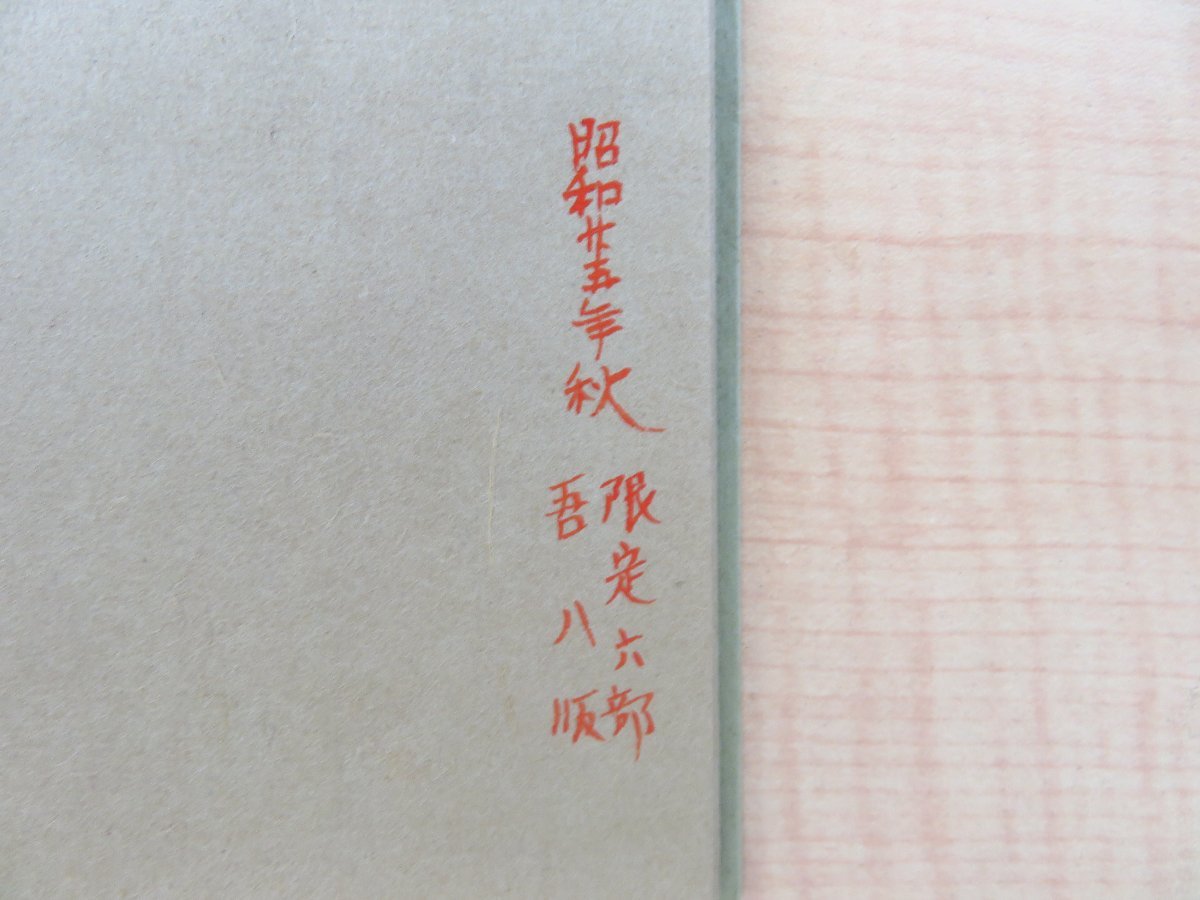 昭和廿五年秋
限定六部
吾八版